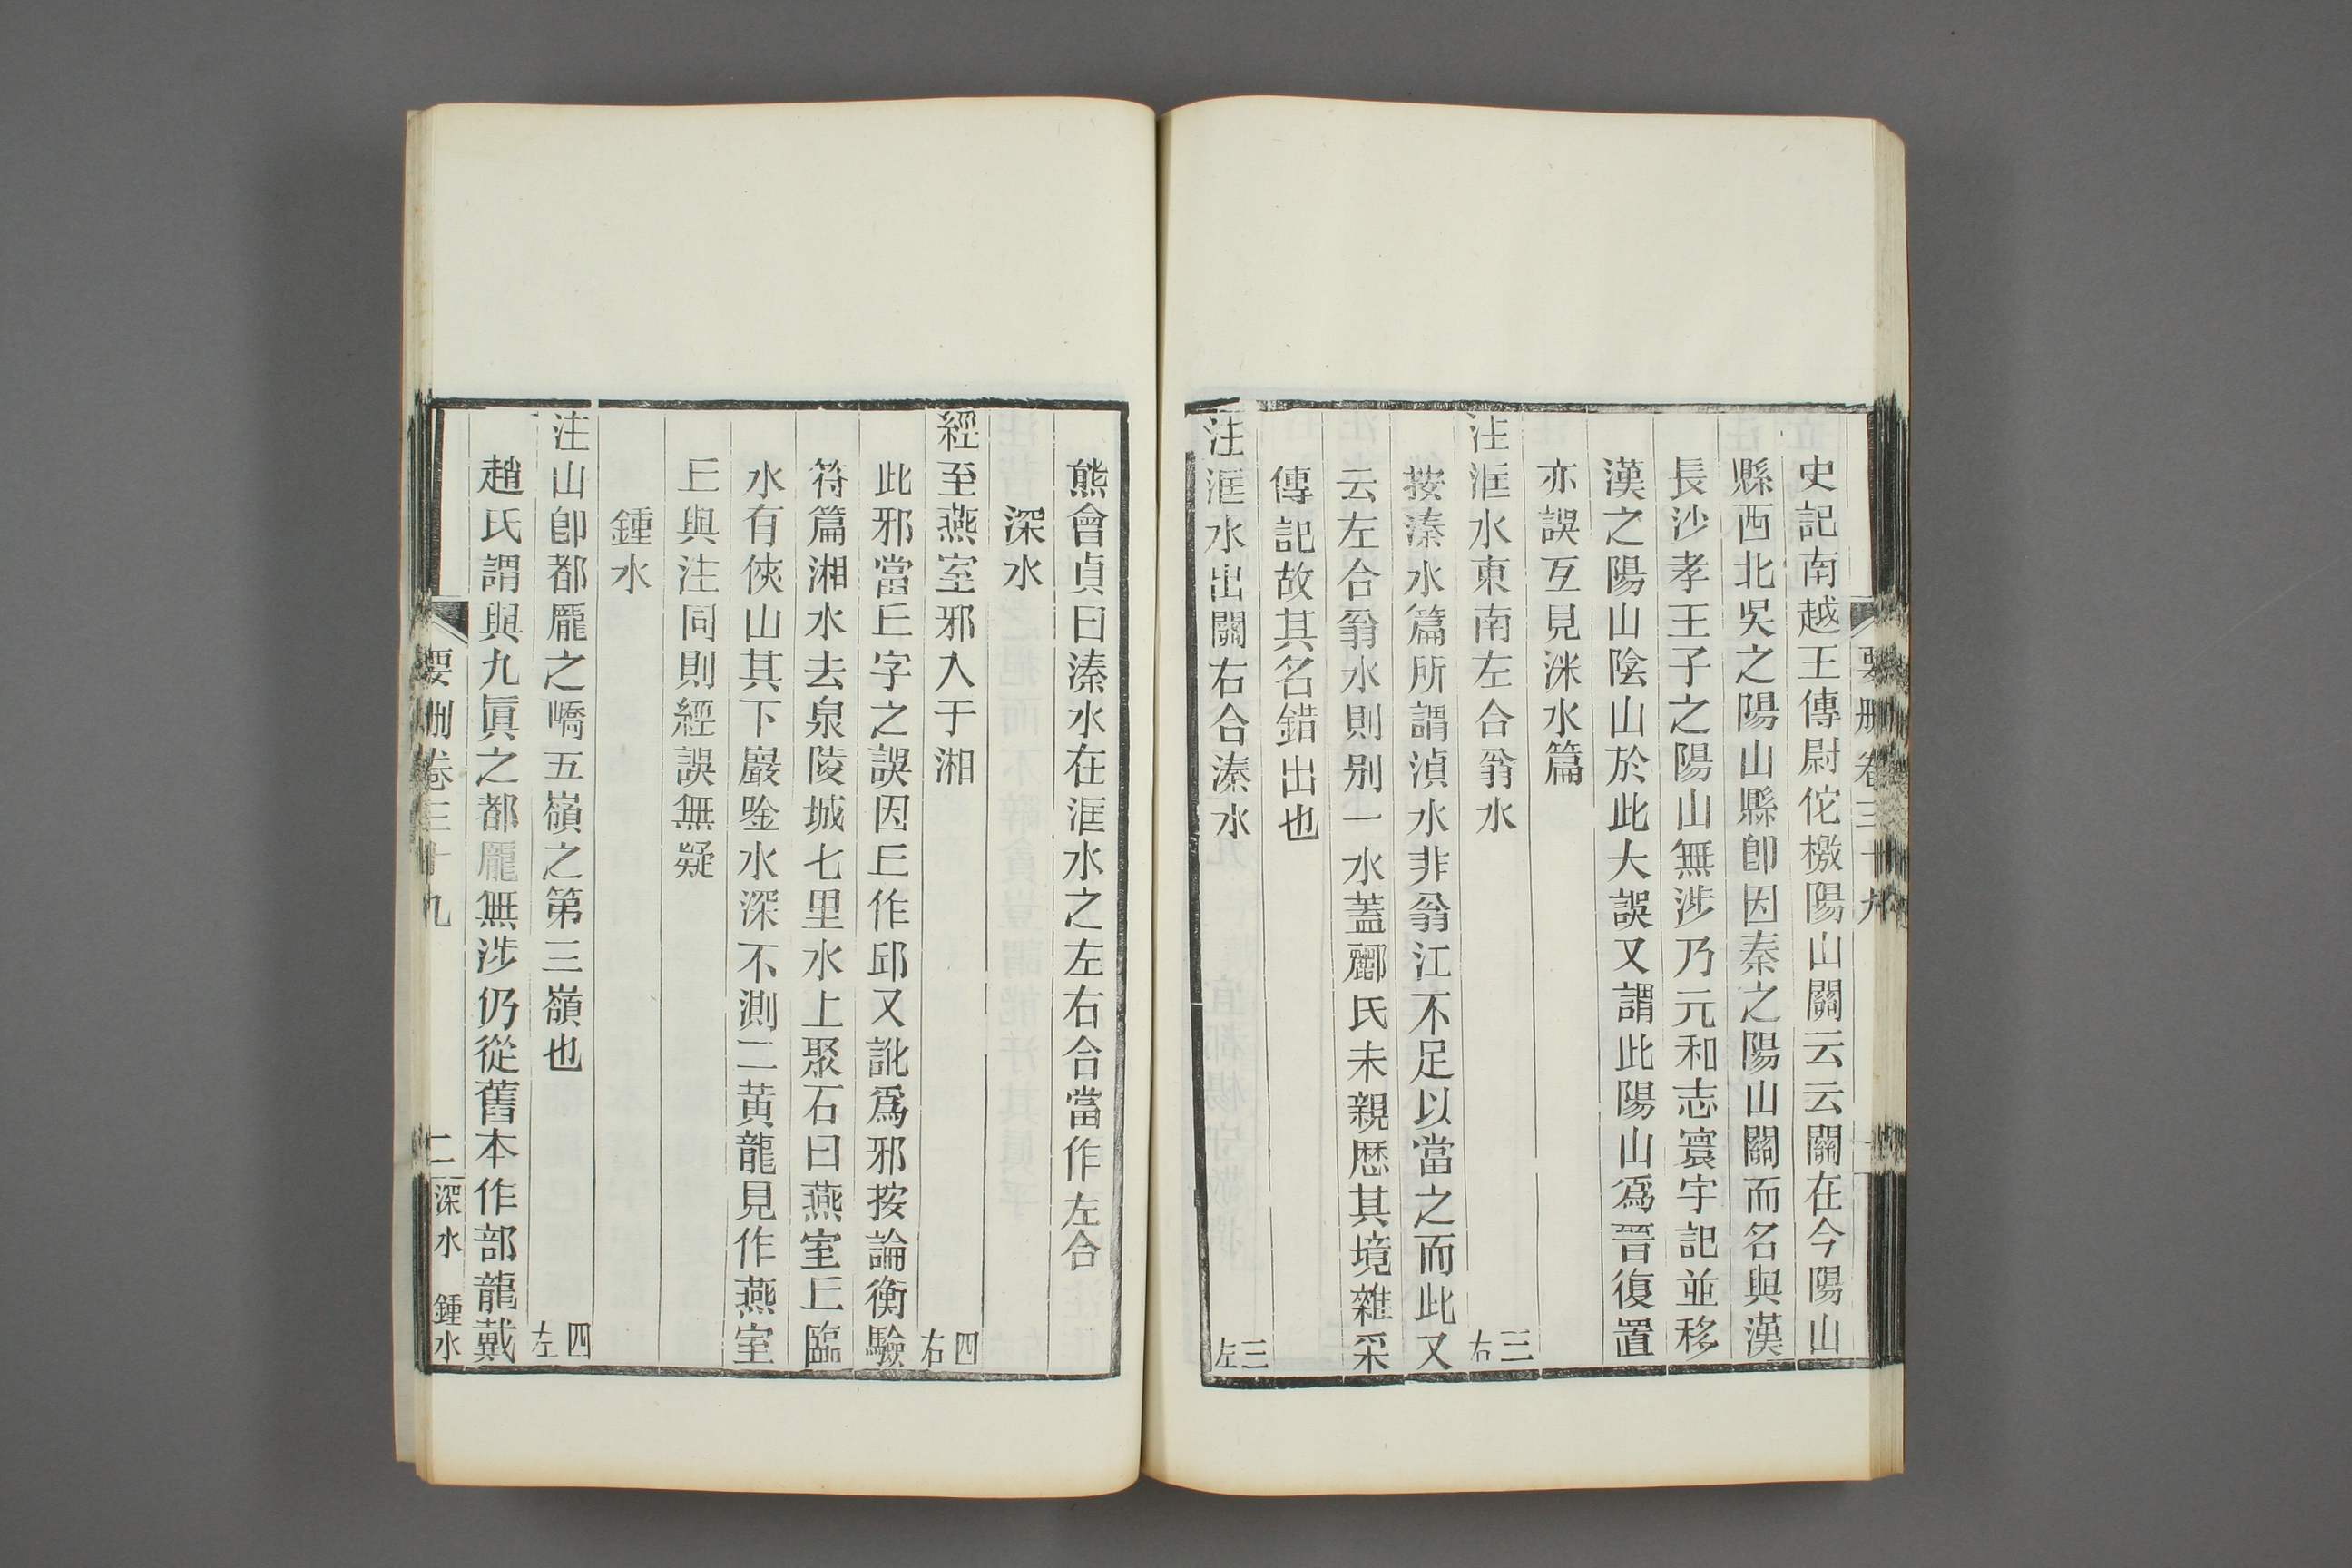 史記南越王傳尉佗檄陽山關云云關在今陽山
縣西北吳之陽山縣卽因秦之陽山關而名與漢
長沙孝王子之陽山無涉乃元和志寰宇記並移
漢之陽山陰山於此大誤又謂此陽山爲晉復置
亦誤互見洣水篇
注洭水東南左合翁水 三右
按溱水篇所謂湞水非翁江不足以當之而此又
云左合翁水則别一水蓋酈氏未親歷其境雜采
傳記故其名錯出也
注洭水出關右合溱水 三左
熊會貞曰溱水在洭水之左右合當作左合
深水
經至燕室邪入于湘 四右
此邪當㠪字之誤因㠪作邱又訛爲邪按論衡驗
符篇湘水去泉陵城七里水上聚石曰燕室㠪臨
水有俠山其下巖唫水深不測二黃龍見作燕室
㠪與注同則經誤無疑
鍾水
注山卽都龐之嶠五嶺之第三嶺也 四左
趙氏謂與九眞之都龐無涉仍從舊本作部龍戴
要刪卷三十九 二 深水 鍾水